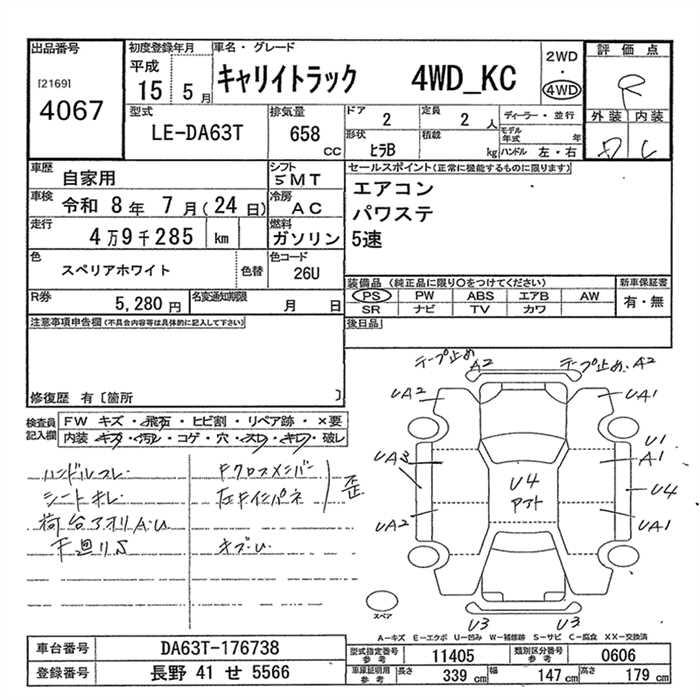 出品番号
[2169]
4067
初度登録年月
平成
15 5 月
車名・グレード
キャリイトラック 4WD_KC
2WD
・
4WD
評価点
R
外装 内装
C
型式
LE-DA63T
排気量
658
cc
ドア
2
定員
2 人
形状
ヒラB
積載
kg
ディーラー・並行
モデル年式 年
ハンドル 左・右
車歴
自家用
シフト
5MT
セールスポイント(正常に機能するものに限ります)
エアコン
パワステ
5速
車検
令和 8 年 7 月(24 日)
冷房
AC
走行
4万9千285 km
燃料
ガソリン
色
スペリアホワイト
色替
色コード
26U
R券
5,280 円
名変通知期限
月 日
装備品(純正品に限り○をつけてください)
PS PW ABS エアB AW
SR ナビ TV カワ
新車保証書
有・無
注意事項申告欄(不具合内容等は具体的に記入して下さい)
後日品
修復歴 有〔箇所 〕
検査員記入欄
FW キズ・飛石・ヒビ割・リペア跡・×要
内装 キズ・汚レ・コゲ・穴・スレ・キレ・破レ
ハンドルスレ
シートキレ
荷台アオリA.U
下廻りS
Fクロスメンバー
右Fインパネ
歪
キズ.U
テープ止め
A2
テープ止め.A2
UA2
UA1
U1
UA3
A1
U4
U4
UA2
UA1
U3
U3
スペア
A-キズ E-エクボ U-凹み W-補修跡 S-サビ C-腐食 XX-交換済
車台番号
DA63T-176738
型式指定番号
参考
11405
類別区分番号
参考
0606
登録番号
長野 41 せ 5566
車庫証明用
参考
長さ
339 cm
幅
147 cm
高さ
179 cm